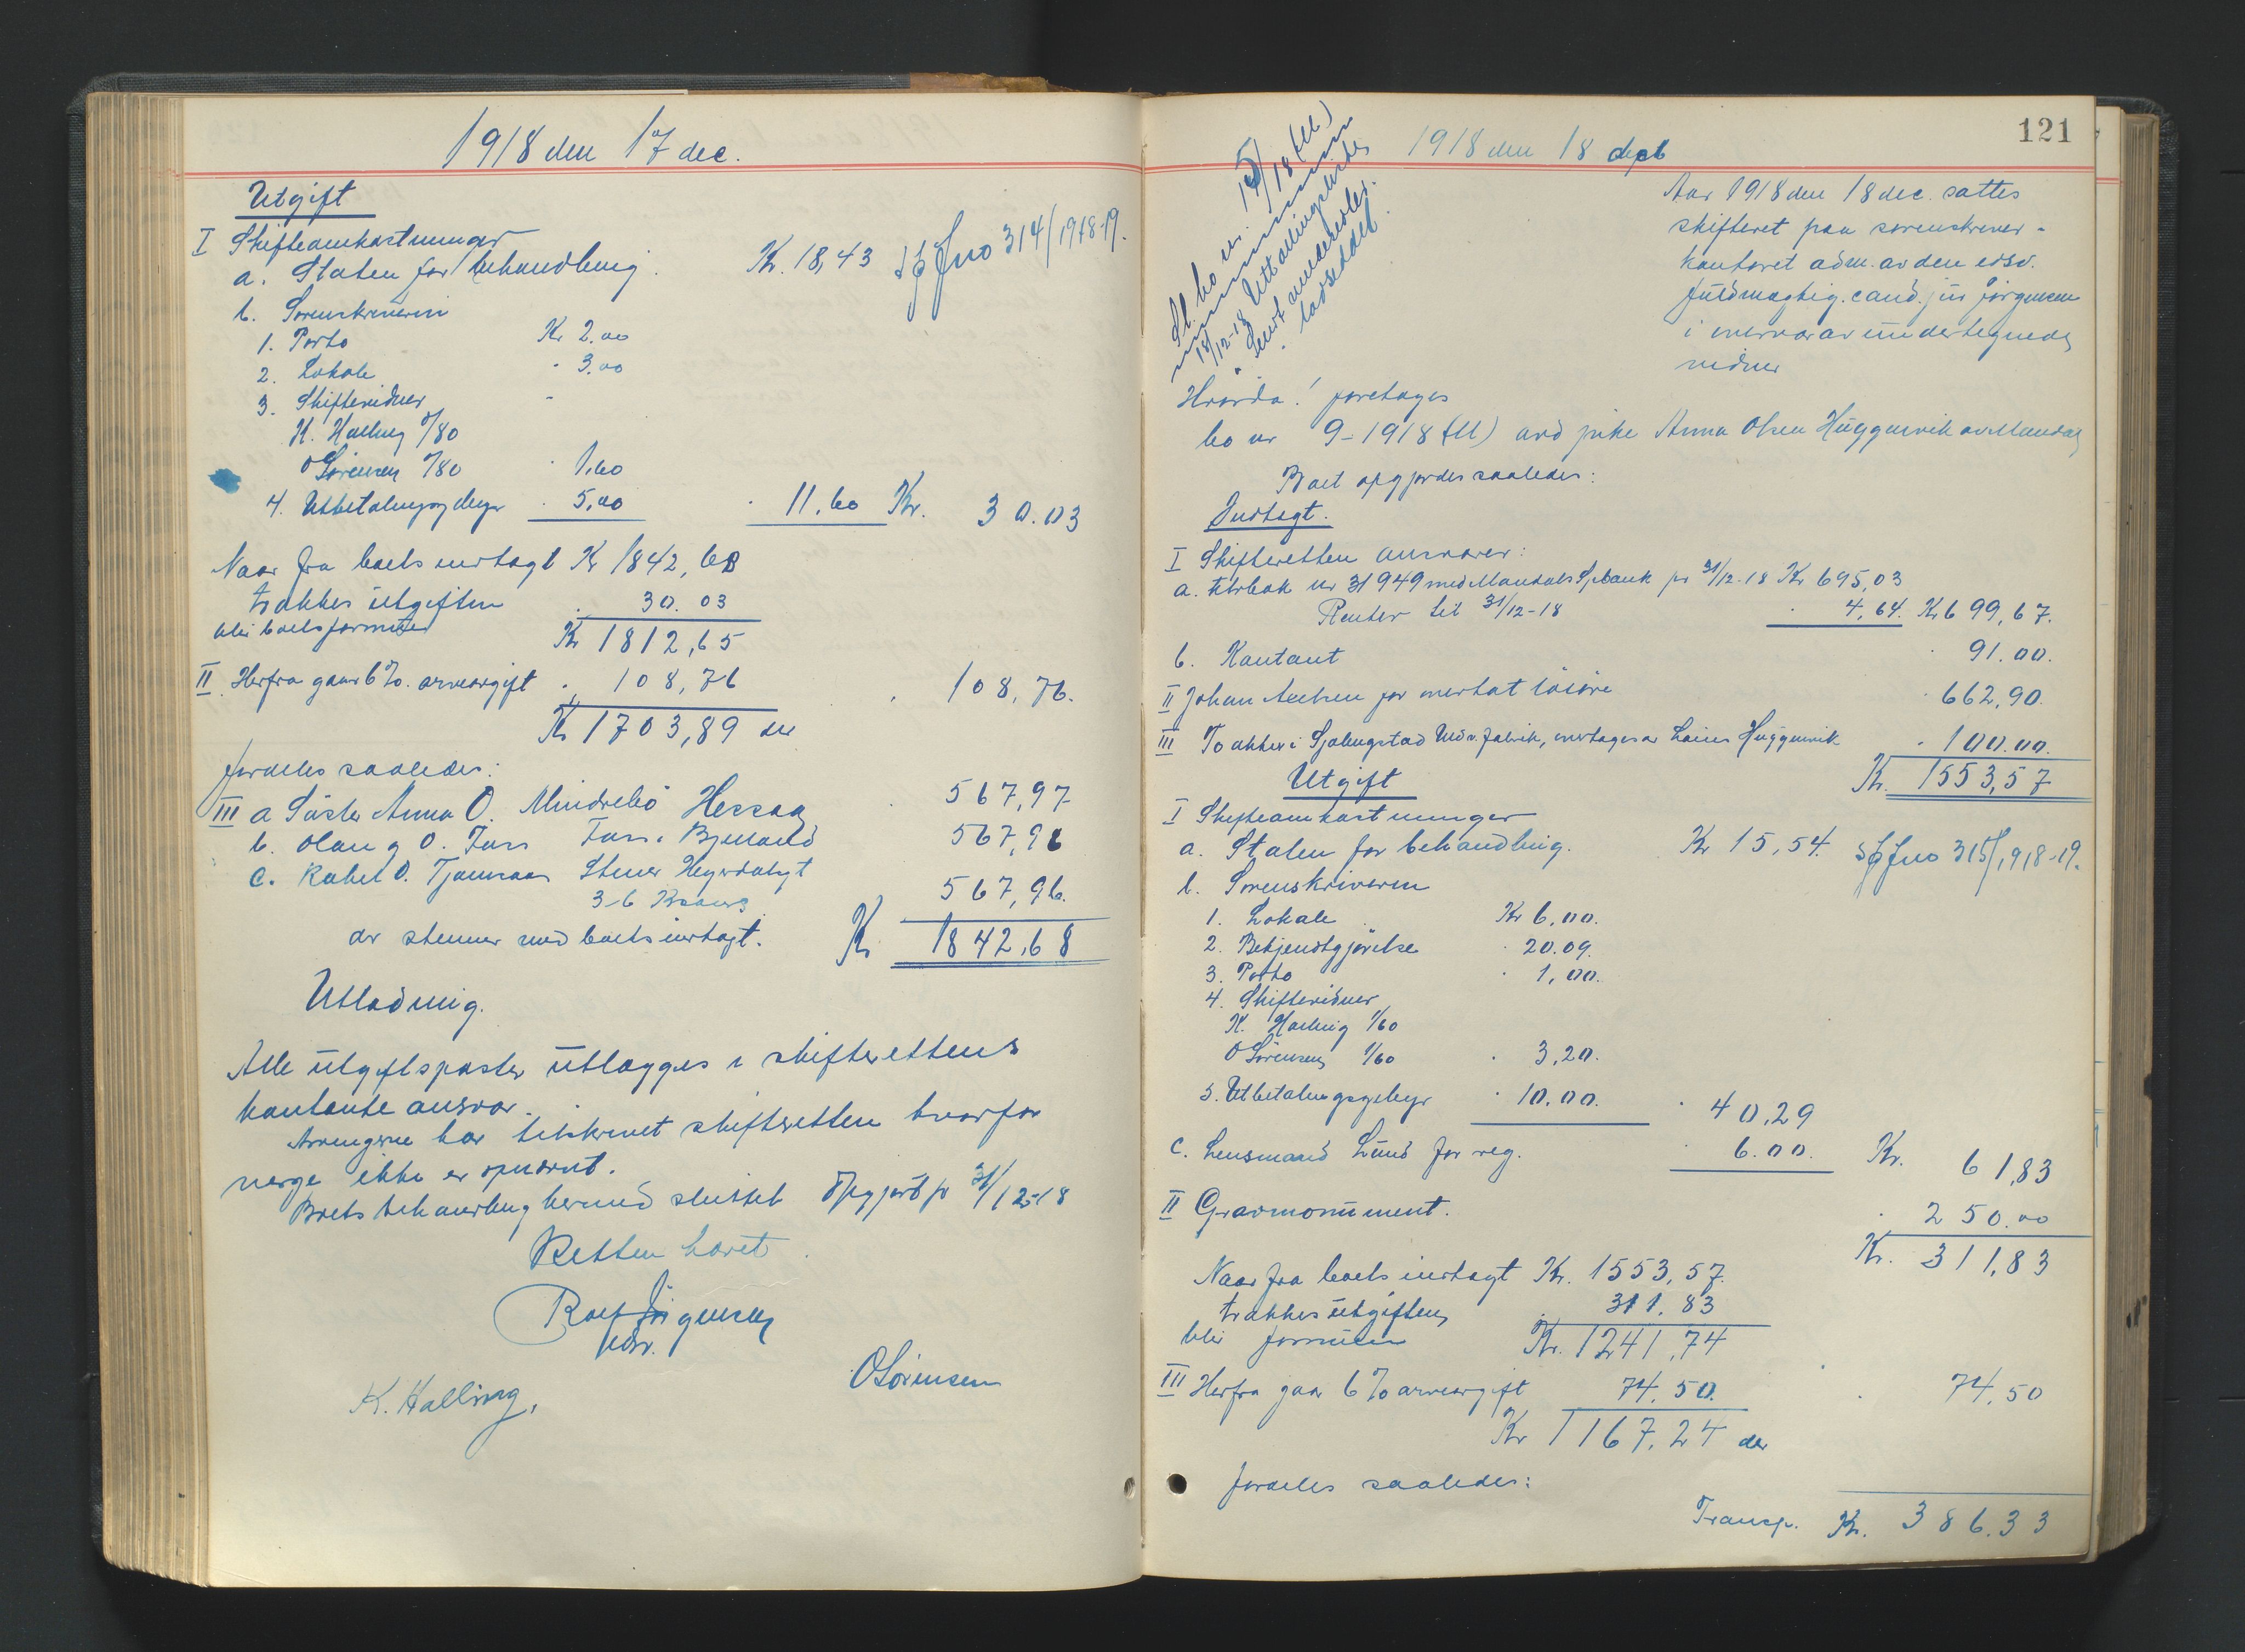 1918 den 17 dec.
Utgift
I Skifteomkostninger
a. Staten for behandling. Kr. 18,43 Jno 314/1918-19.
b. Sorenskriveren
1. Porto Kr 2.00
2. Lokale " 3.00
3. Skiftevidner
K. Halling /80
O Sørensen /80 " 1.60
4. Utbetalingsgebyr " 5,00 " 11.60 Kr. 30.03
Naar fra boets indtægt Kr 1842,68
trækkes utgiften " 30.03
blir boets formue Kr 1812,65
II. Herfra gaar 6%. arveavgift " 108,76 " 108,76.
Kr 1703,89 der
fordeles saaledes:
III a Søster Anna O. Mindrebø Hessaa 567,97
b. Olau g O. Foss Foss. Bjelland 567,96
c. Rakel O. Tjomsaas Stener Heyerdalsgt
3-6 Krsand 567,96.
der stemmer med boets indtægt. Kr. 1842,68
Utlodning.
Alle utgiftsposter utlægges i skifterettens
kontante ansvar.
Arvingerne har tilskrevet skifteretten hvorfor
verge ikke er opnævnt.
Boets behandling hermed sluttet Opgjort pr 31/12-18
Retten hævet.
Rolf Jörgensen
kst.
K. Halling. O Sörensen
121
1918 den 18 dec
Sl. bo nr. 15/18 (M)
18/12-18 Utt
Aar 1918 den 18 dec. sattes
skifteret paa sorenskriver-
kontoret adm. av den edsv.
fuldmægtig. cand. jur Jörgensen
i nærvær av undertegnede
vidner
Hvorda! foretages
bo nr 9-1918 (M) avd pike Anna Olsen Huggenvik av Mandal
Boet opgjordes saaledes:
Indtægt.
I Skifteretten ansvarer:
a. knrbok nr 31949 med Mandals Spbank pr 31/12-18 Kr 695,03
Renter til 31/12-18 " 4,64. Kr 699,67.
b. Kontant " 91.00.
II Johan Axelsen for overtat løsøre " 662,90.
III To aktier i Sjølingstad Uldv. fabrik, overtages av Laurs Huggenvik " 100.00.
Kr. 1553,57
Utgift
I Skifteomkostninger
a. Staten for behandling. Kr 15,54. Jno 315/1918-19.
b. Sorenskriveren
1. Lokale Kr 6,00.
2. Bekjendtgjørelse " 20.09.
3. Porto " 1,00.
4. Skiftevidner
K. Halling 1/60
O Sörensen 1/60 " 3,20.
5. Utbetalingsgebyr " 10.00. " 40,29
c. Lensmand Lund for reg. " 6.00. Kr. 61,83
II Gravmonument. " 250.00
Kr. 311,83
Naar fra boets indtægt Kr. 1553,57.
trækkes utgiften " 311.83
blir formuen Kr. 1241,74
III Herfra gaar 6% arveavgift 74,50. " 74,50
Kr 1167,24 der
fordeles saaledes:
Transp. Kr. 386.33